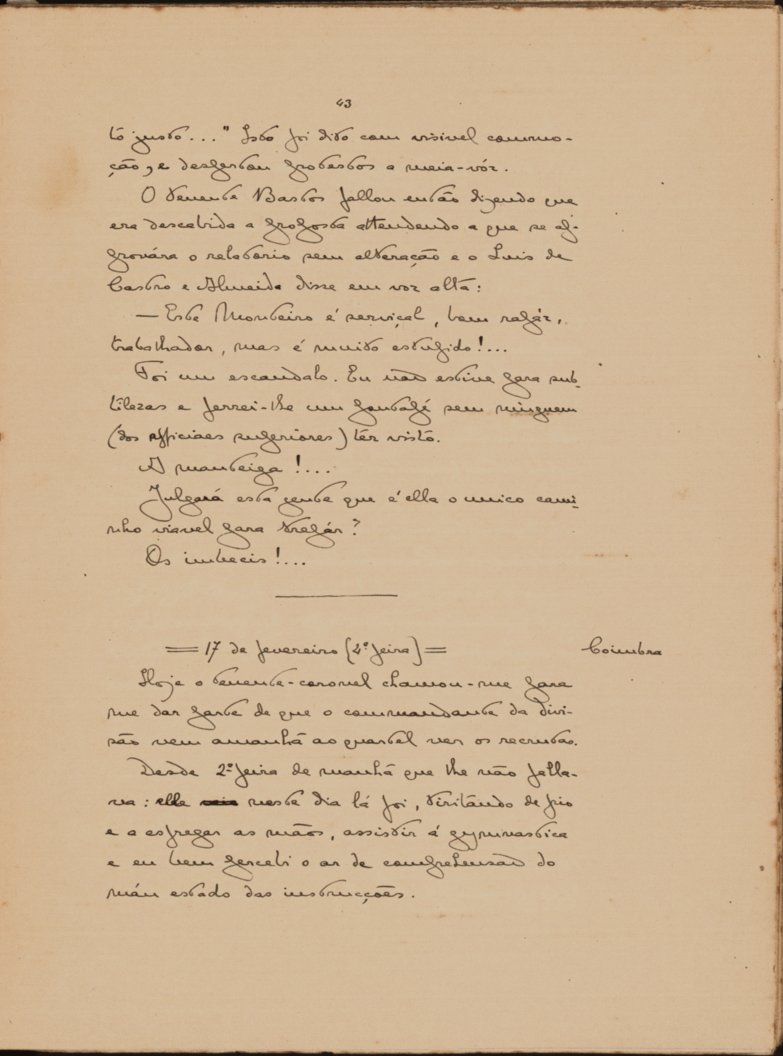 43
to justo..." Isto foi dito com visivel commo-
ção, e despertou protestos a meia-vóz.
O tenente Bastos fallou então dizendo que
era descabida a proposta attendendo a que se ap-
provára o relatorio sem alteração e o Luis de
Castro e Almeida disse em voz alta:
— Este Monteiro é serviçal, bom rapáz,
trabalhador, mas é muito estupido!...
Foi um escandalo. Eu não estive para sub-
tilezas e ferrei-lhe um pontapé sem ninguem
(dos officiaes superiores) têr visto.
A manteiga!...
Julgará esta gente que é ella o unico cami-
nho viavel para trepár?
Os imbecis!...
= 17 de fevereiro (4ª feira) =
Coimbra
Hoje o tenente-coronel chamou-me para
me dar parte de que o commandante da divi-
são vem amanhã ao quartel ver os recrutas.
Desde 2ª feira de manhã que lhe não falla-
va: elle neste dia lá foi, tiritando de frio
e a esfregar as mãos, assistir á gymnastica
e eu bem percebi o ar de comprehensão do
máu estado das instrucções.